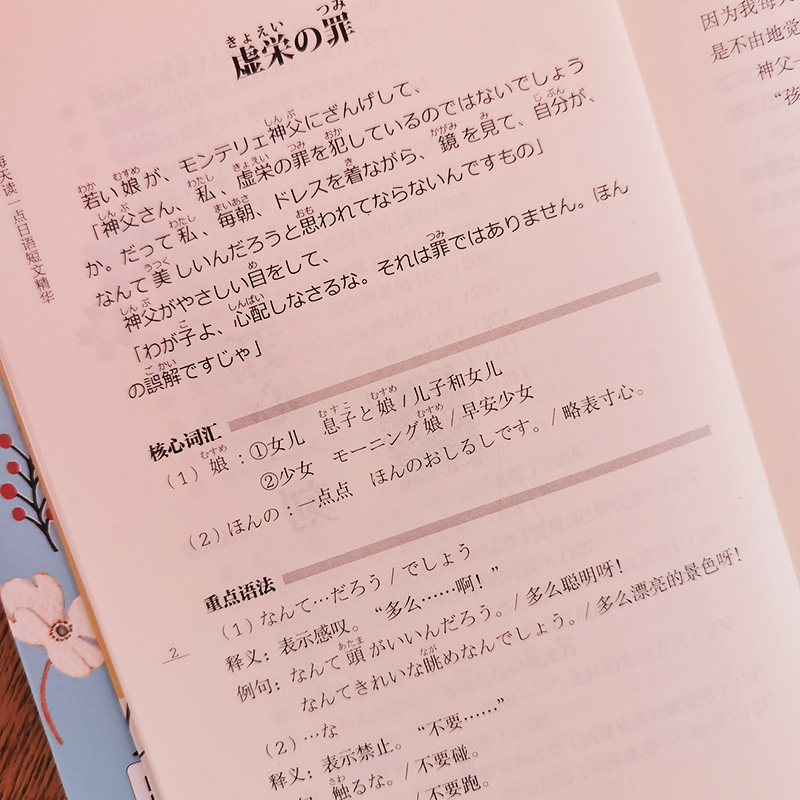 虚栄の罪
きょえい つみ
若い娘が、モンテリェ神父にざんげして、
わか むすめ しんぷ
「神父さん、私、虚栄の罪を犯しているのではないでしょう
しんぷ わたし きょえい つみ おか
か。だって私、毎朝、ドレスを着ながら、鏡を見て、自分が、
わたし まいあさ き かがみ み じぶん
なんて美しいんだろうと思われてならないんですもの」
うつく おも
神父がやさしい目をして、
しんぷ め
「わが子よ、心配しなさるな。それは罪ではありません。ほん
こ しんぱい つみ
の誤解ですじゃ」
ごかい
核心词汇
(1) 娘：①女儿 息子と娘/儿子和女儿
むすめ むすこ むすめ
②少女 モーニング娘/早安少女
むすめ
(2) ほんの：一点点 ほんのおしるしです。/略表寸心。
重点语法
(1) なんて…だろう/でしょう
释义：表示感叹。“多么……啊！”
例句：なんて頭がいいんだろう。/多么聪明呀！
あたま
なんてきれいな眺めなんでしょう。/多么漂亮的景色呀！
なが
(2) …な
释义：表示禁止。“不要……”
触るな。/不要碰。
さわ
/不要跑。
2
每天读一点日语短文精华
因为我每天
是不由地觉
神父一
“孩